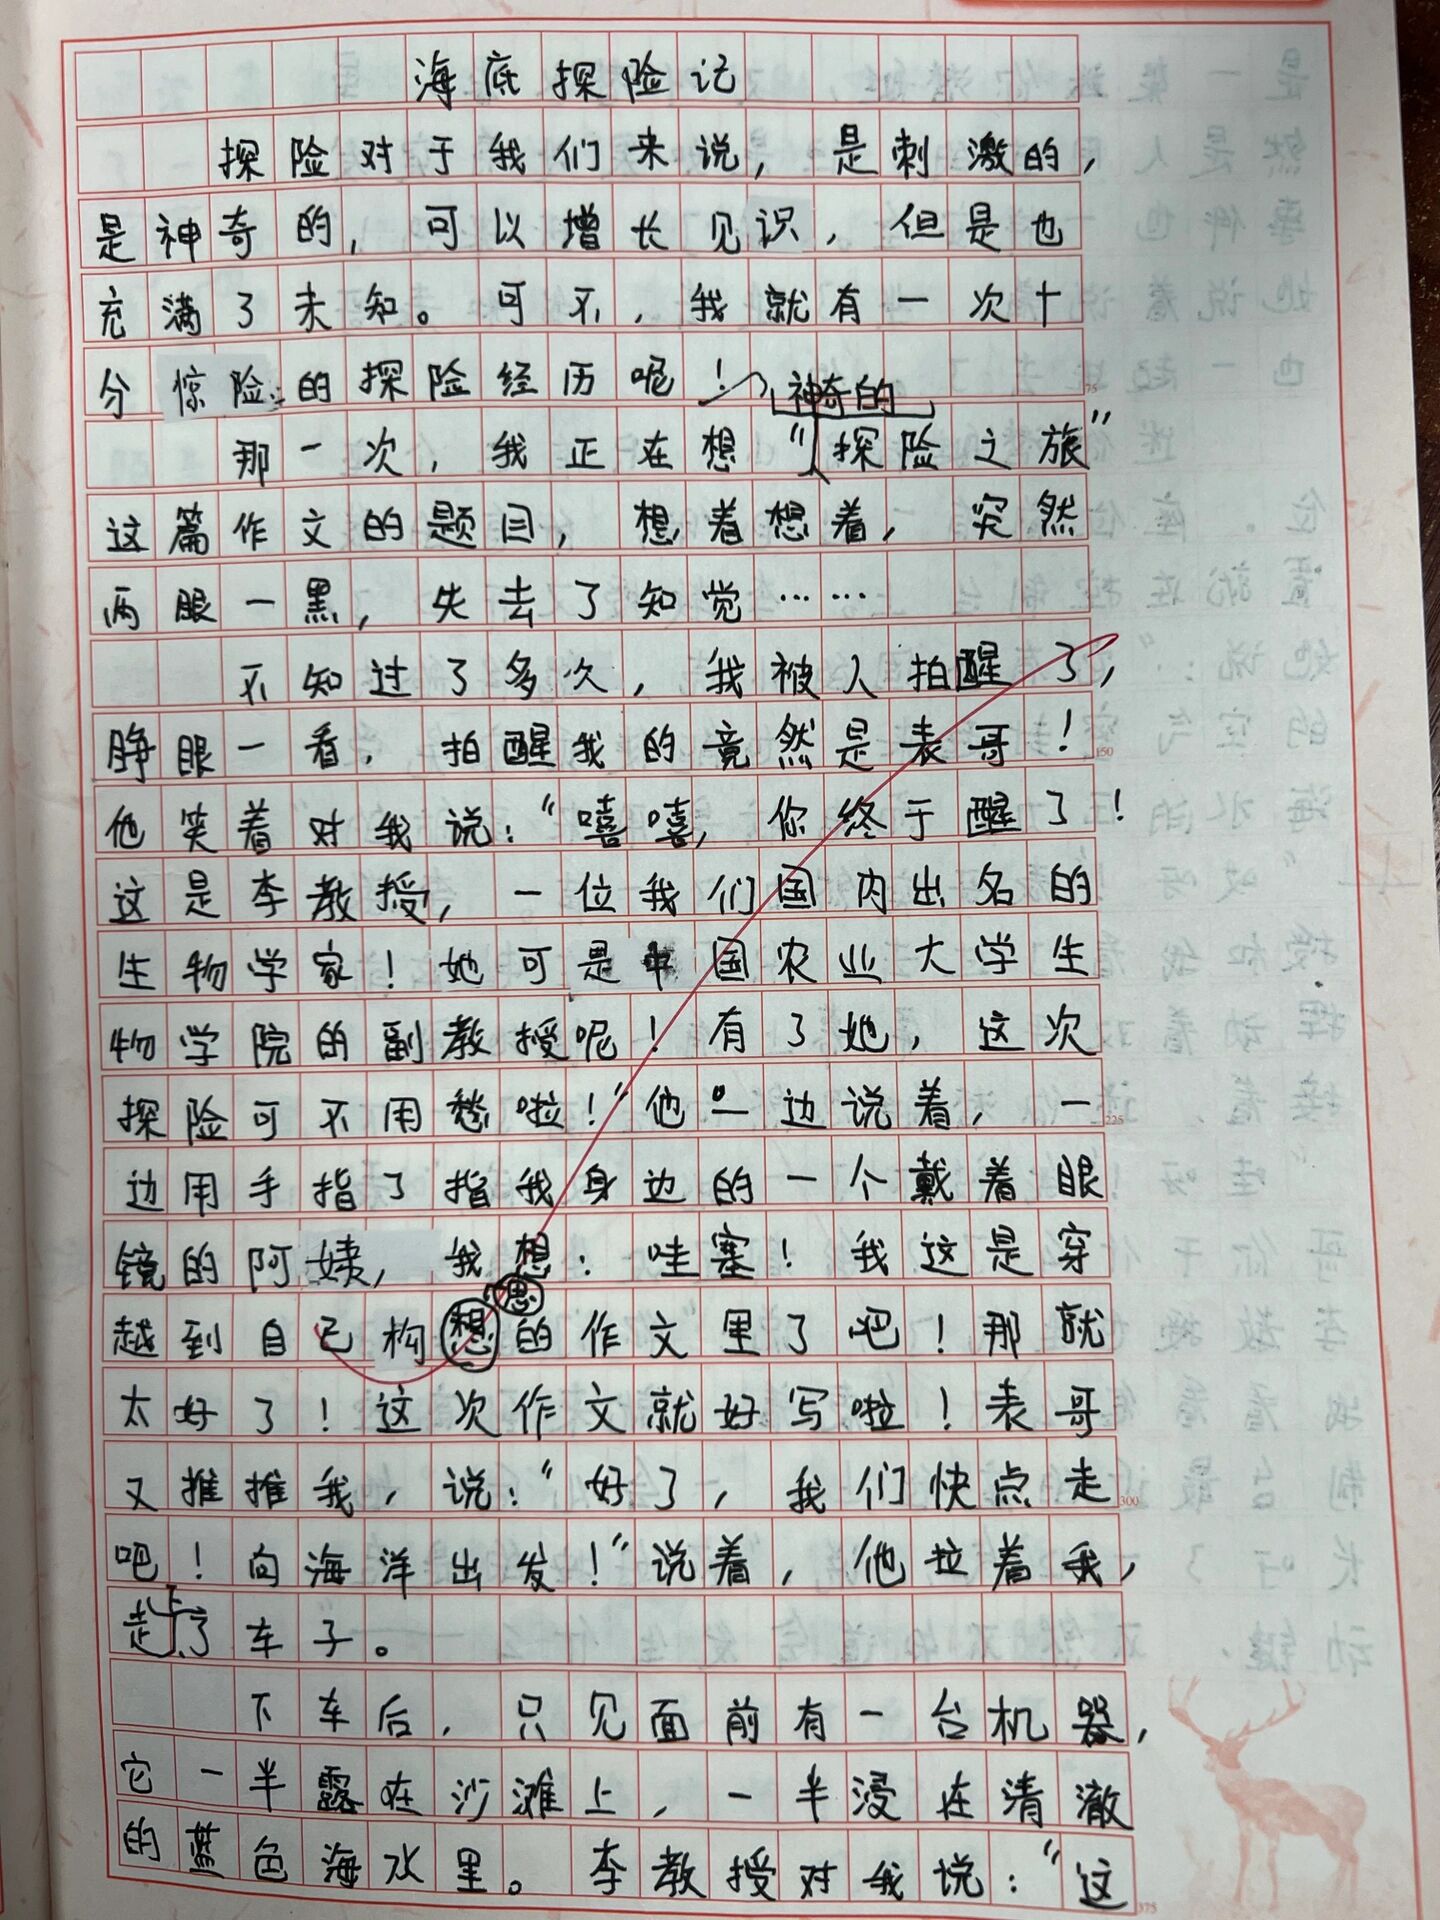 海底探险记
探险对于我们来说，是刺激的，
是神奇的，可以增长见识，但是也
充满了未知。可不，我就有一次十
分惊险的探险经历呢！
神奇的
那一次，我正在想“探险之旅”
这篇作文的题目，想着想着，突然
两眼一黑，失去了知觉……
不知过了多久，我被人拍醒了，
睁眼一看，拍醒我的竟然是表哥！
他笑着对我说：“嘻嘻，你终于醒了！
这是李教授，一位我们国内出名的
生物学家！她可是中国农业大学生
物学院的副教授呢！有了她，这次
探险可不用愁啦！”他一边说着，一
边用手指了指我身边的一个戴着眼
镜的阿姨，我想：哇塞！我这是穿
思
越到自己构想的作文里了吧！那就
太好了！这次作文就好写啦！表哥
又推推我，说：“好了，我们快点走
吧！向海洋出发！”说着，他拉着我，
走上了车子。
下车后，只见面前有一台机器，
它一半露在沙滩上，一半浸在清澈
的蓝色海水里。李教授对我说：“这
75
150
225
300
375